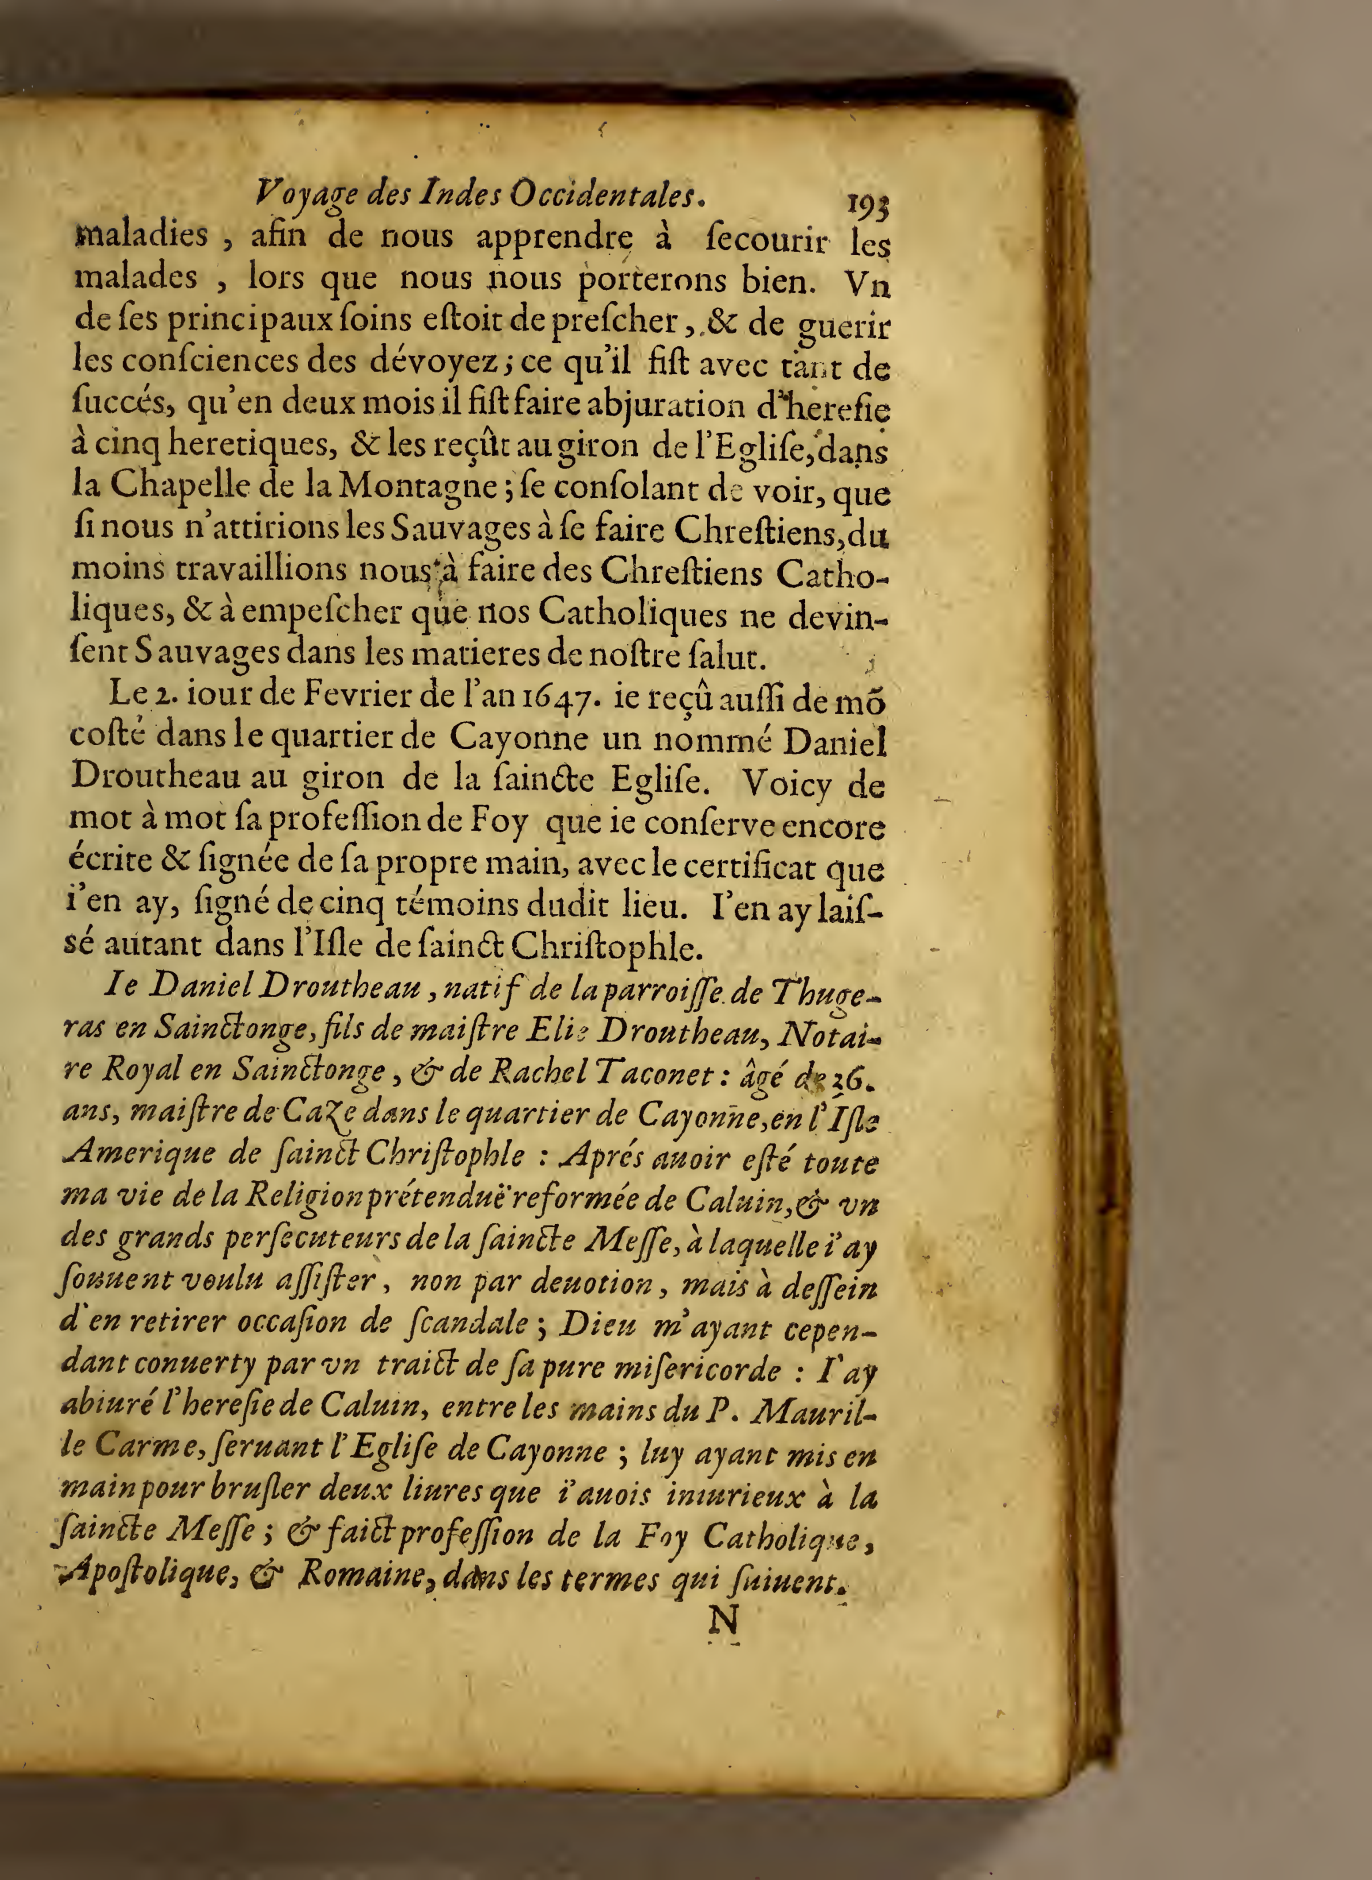 Voyage des Indes Occidentales. 193
maladies , afin de nous apprendre à ſecourir les
malades , lors que nous nous porterons bien. Vn
de ſes principaux ſoins eſtoit de preſcher , & de guerir
les conſciences des dévoyez ; ce qu'il fiſt avec tant de
ſuccés, qu'en deux mois il fiſt faire abjuration d'hereſie
à cinq heretiques, & les reçût au giron de l'Egliſe, dans
la Chapelle de la Montagne ; ſe conſolant de voir, que
ſi nous n'attirions les Sauvages à ſe faire Chreſtiens, du
moins travaillions nous à faire des Chreſtiens Catho-
liques, & à empeſcher que nos Catholiques ne devin-
ſent Sauvages dans les matieres de noſtre ſalut.
Le 2. iour de Fevrier de l'an 1647. ie reçû auſſi de mõ
coſté dans le quartier de Cayonne un nommé Daniel
Droutheau au giron de la ſaincte Egliſe. Voicy de
mot à mot ſa profeſſion de Foy que ie conſerve encore
écrite & ſignée de ſa propre main, avec le certificat que
i'en ay, ſigné de cinq témoins dudit lieu. I'en ay laiſ-
sé autant dans l'Iſle de ſainct Chriſtophle.
Ie Daniel Droutheau , natif de la parroiſſe de Thuge-
ras en Sainctonge, fils de maiſtre Elie Droutheau, Notai-
re Royal en Sainctonge , & de Rachel Taconet : âgé de 36.
ans, maiſtre de Caze dans le quartier de Cayonne, en l'Iſle
Amerique de ſainct Chriſtophle : Aprés auoir eſté toute
ma vie de la Religion prétenduë reformée de Caluin, & vn
des grands perſecuteurs de la ſaincte Meſſe, à laquelle i'ay
ſouuent voulu aſſiſter , non par deuotion , mais à deſſein
d'en retirer occaſion de ſcandale ; Dieu m'ayant cepen-
dant conuerty par vn traict de ſa pure miſericorde : I'ay
abiuré l'hereſie de Caluin, entre les mains du P. Mauril-
le Carme, ſeruant l'Egliſe de Cayonne ; luy ayant mis en
main pour bruſler deux liures que i'auois iniurieux à la
ſaincte Meſſe ; & faict profeſſion de la Foy Catholique,
Apoſtolique, & Romaine, dans les termes qui ſuiuent.
N